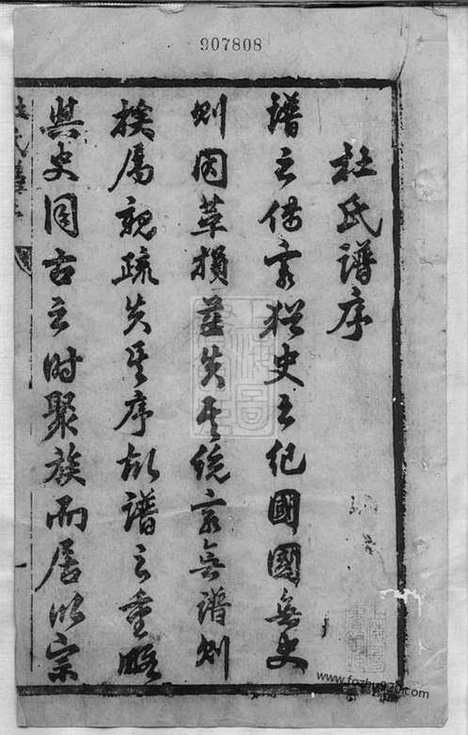 907808
杜氏譜序
譜之傳家猶史之紀國國無史
則因革損益失其統家無譜則
族屬親疏失其序故譜之重略
與史同古之時聚族而居以宗
www.fozhu920.com